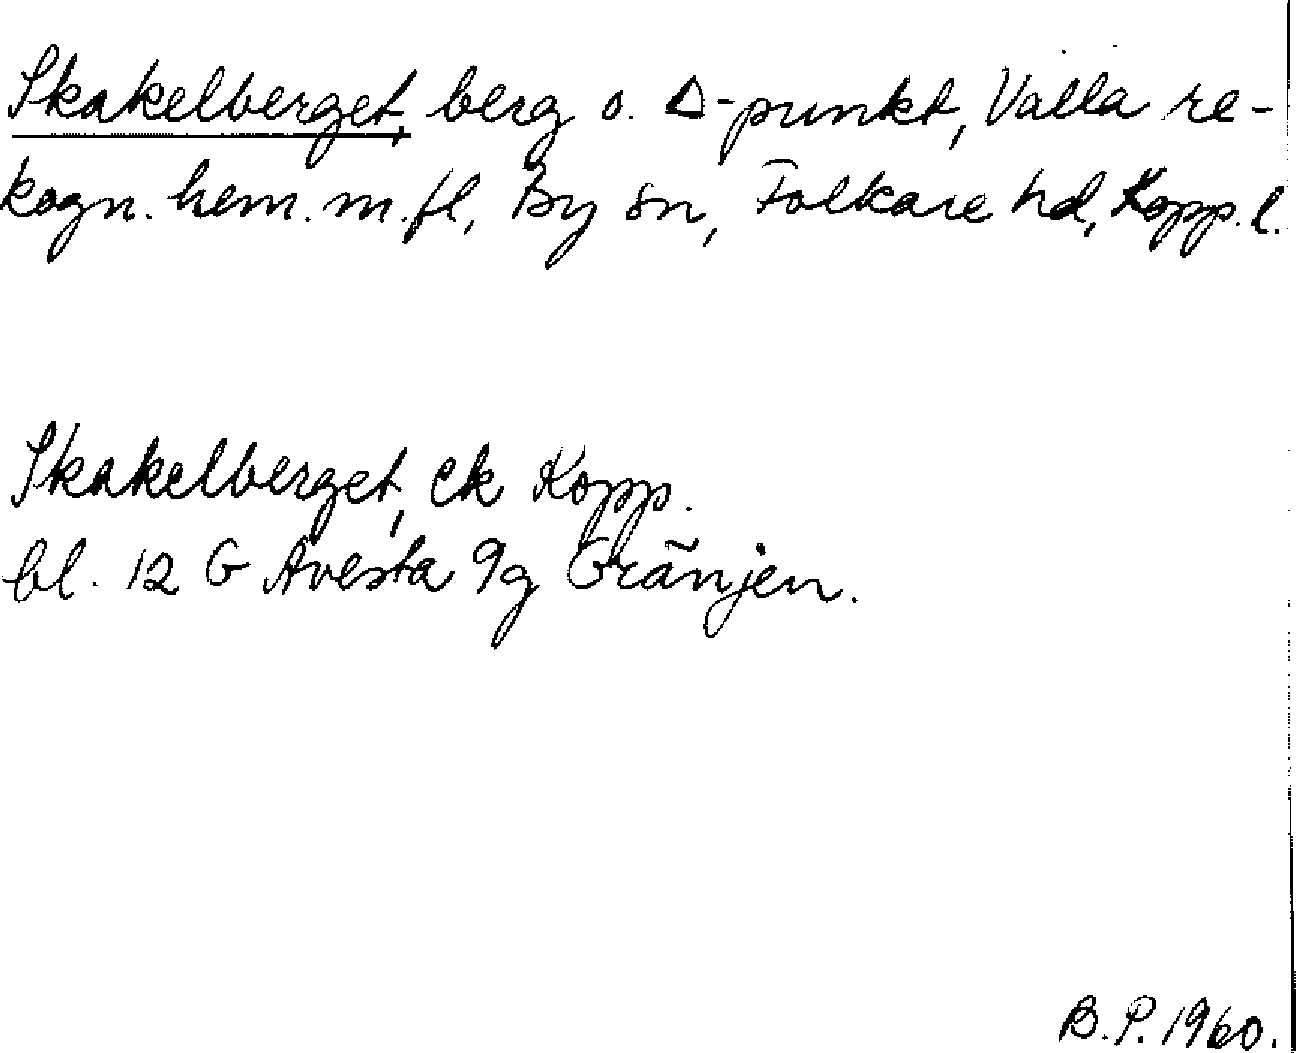 Skakelberget, berg o. Δ-punkt, Valla re-
kogn. hem. m.fl., By sn, Folkare hd, Kopp. l.
Skakelberget, ek Kopp.
bl. 12 G Avesta 9g Gränjen.
B.P. 1960.